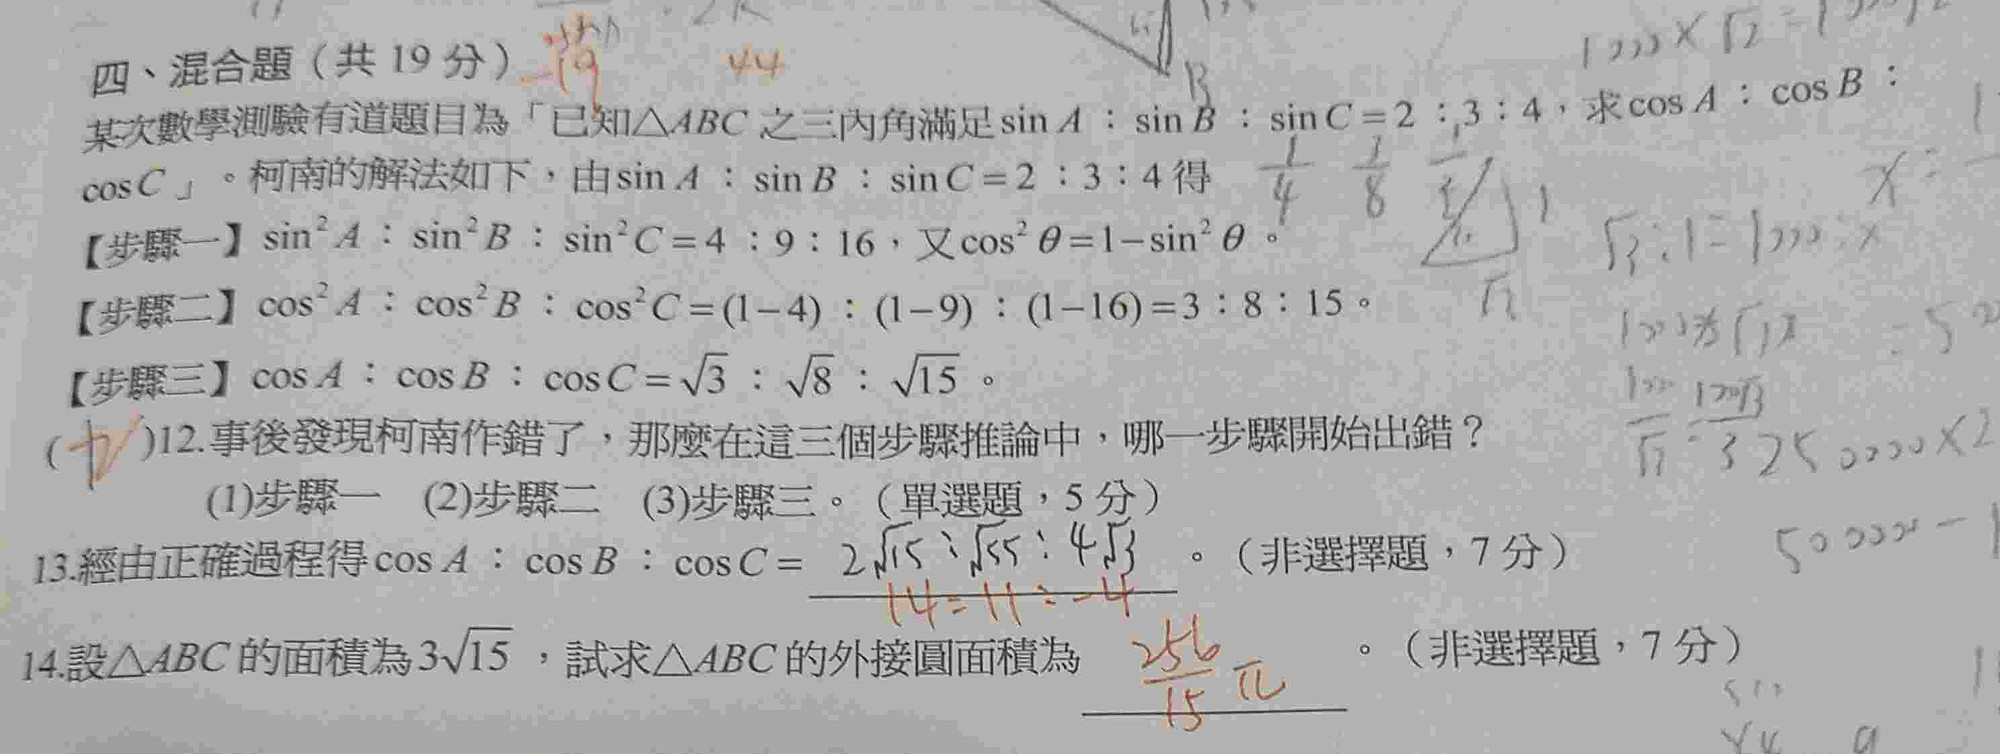 四、混合題（共 19 分）
-19
44
B
某次數學測驗有道題目為「已知△ABC 之三內角滿足 sin A：sin B：sin C＝2：3：4，求 cos A：cos B：
cos C」。柯南的解法如下，由 sin A：sin B：sin C＝2：3：4 得
1/4 1/8
【步驟一】sin² A：sin² B：sin² C＝4：9：16，又 cos² θ＝1−sin² θ。
【步驟二】cos² A：cos² B：cos² C＝(1−4)：(1−9)：(1−16)＝3：8：15。
【步驟三】cos A：cos B：cos C＝√3：√8：√15。
( )12.事後發現柯南作錯了，那麼在這三個步驟推論中，哪一步驟開始出錯？
(1)步驟一 (2)步驟二 (3)步驟三。（單選題，5 分）
13.經由正確過程得 cos A：cos B：cos C＝ 2√15：√55：4√3 。（非選擇題，7 分）
14：11：-4
14.設△ABC 的面積為 3√15，試求△ABC 的外接圓面積為 256/15 π 。（非選擇題，7 分）